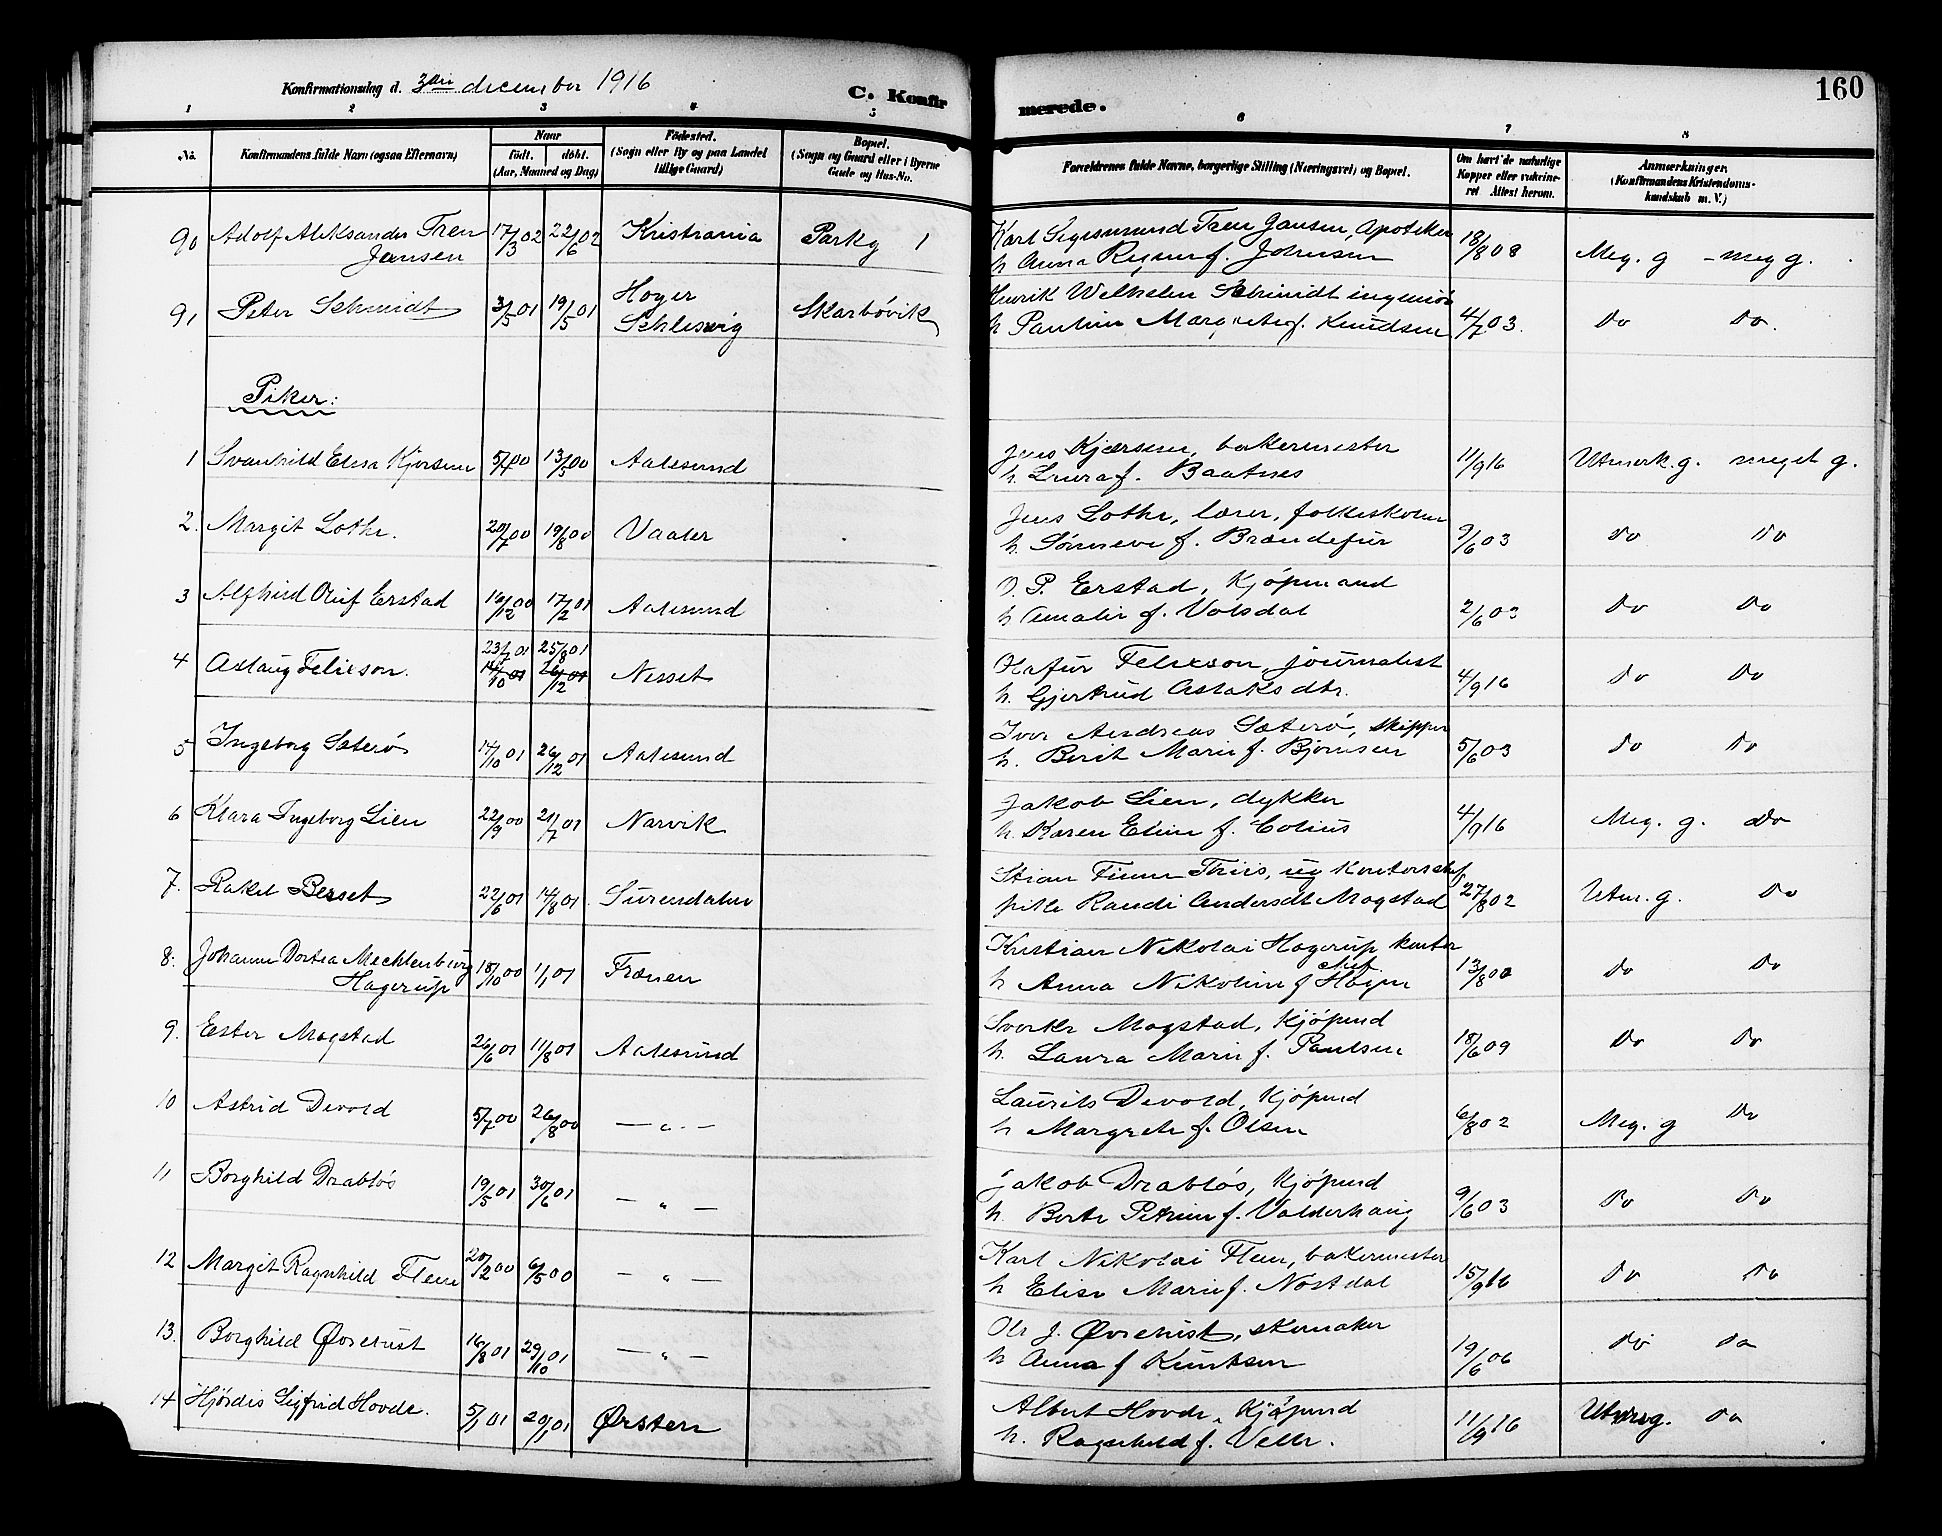 Konfirmationsdag d. 3die december 1916
C. Konfirmerede.
160
1 2 3 4 5 6 7 8
No. Konfirmandens fulde Navn (ogsaa Efternavn) Naar født. døbt. (Aar, Maaned og Dag) Fødested. (Sogn eller By og paa Landet tillige Gaard) Bopæl. (Sogn og Gaard eller i Byerne Gade og Hus-No. Forældrenes fulde Navne, borgerlige Stilling (Næringsvei) og Bopæl. Om havt de naturlige Kopper eller vakcineret Attest herom. Anmærkninger. (Konfirmandens Kristendomskundskab m. V.)
90 Adolf Aleksander Tren 17/3 02 22/6 02 Kristiania Parkg 1 Karl Sigismund Tren Jansen, Apoteker 18/8 08 Meg. g - meg g.
Jansen h Anna f. Johnsen
91 Peter Schmidt 3/5 01 19/5 01 Hoyer Skarbøvik Henrik Welhelm Schmidt ingeniør 4/7 03. Do Do.
Schleswig h Pauline Margrete f. Knudsen
Piker:
1 Svanhild Elisa Kjersem 5/4 00 13/5 00 Aalesund Jens Kjærsem, bakermester 11/9 16 Utmerk. g. meget g.
h. Laura f. Baatnes
2. Margit Lothe. 20/7 00 19/8 00 Vaaler Jens Lothe, lærer, folkeskolen 9/6 03 Do Do
h. Sønneve f. Brandefur
3 Alfhild Oluf Erstad 16/12 00 17/2 01 Aalesund O. P. Erstad, Kjøpmand 2/6 03 Do Do
h Amalie f. Volsdal
4 Aslaug Felixson. 23/7 01 25/8 01 Nesset Olafur Felixson, journalist 4/9 16 Do Do
14/10 01 26/12 01 h. Gjertrud Aslaksdtr.
5 Ingeborg Sæterø 14/10 01 26/12 01 Aalesund Iver Andreas Sæterø, skipper 5/6 03 Do Do
h. Berit Marie f. Bjørnsen
6 Klara Ingeborg Lien 22/9 00 21/7 01 Narvik Jakob Lien, dykker 4/9 16 Meg. g. Do
h. Karen Eline f. Colius
7. Rakel Berset 22/6 01 14/8 01 Surendalen Stian Finne Thiis, ug Kontorchef 27/8 02 Utm. g. Do
pike Randi Andersdt Mogstad
8. Johanne Dortea Mechlenburg 18/10 00 1/1 01 Frænen Kristian Nikolai Hagerup kontor 13/8 00 Do Do
Hagerup chef
h Anna Nikoline f Hagen
9. Ester Mogstad 26/6 01 11/8 01 Aalesund Sverke Mogstad, Kjøpmd 18/6 09 Do Do
h. Laura Marie f. Paulsen
10 Astrid Devold 5/7 00 26/8 00 — " — Laurits Devold, Kjøpmd 6/8 02 Meg. g Do
h Margrete f. Olsen
11 Borghild Drabløs 19/5 01 30/6 01 — " — Jakob Drabløs, Kjøpmd 9/6 03 Do Do
h. Berte Petrine f. Valderhaug
12 Margit Ragnhild Flem 20/2 00 6/5 00 — " — Karl Nikolai Flem, bakermester 15/9 16 Do Do
h Elise Marie f. Nostdal
13. Borghild Øvrerust 16/8 01 29/10 01 — " — Ole J. Øvrerust, skomaker 19/6 06 Do Do
h Anna f Knutsen
14 Hjørdis Sigfrid Hovde. 5/1 01 20/1 01 Ørsten Albert Hovde, Kjøpmd 11/9 16 Utm. g. Do
h. Ragnhild f. Velle.